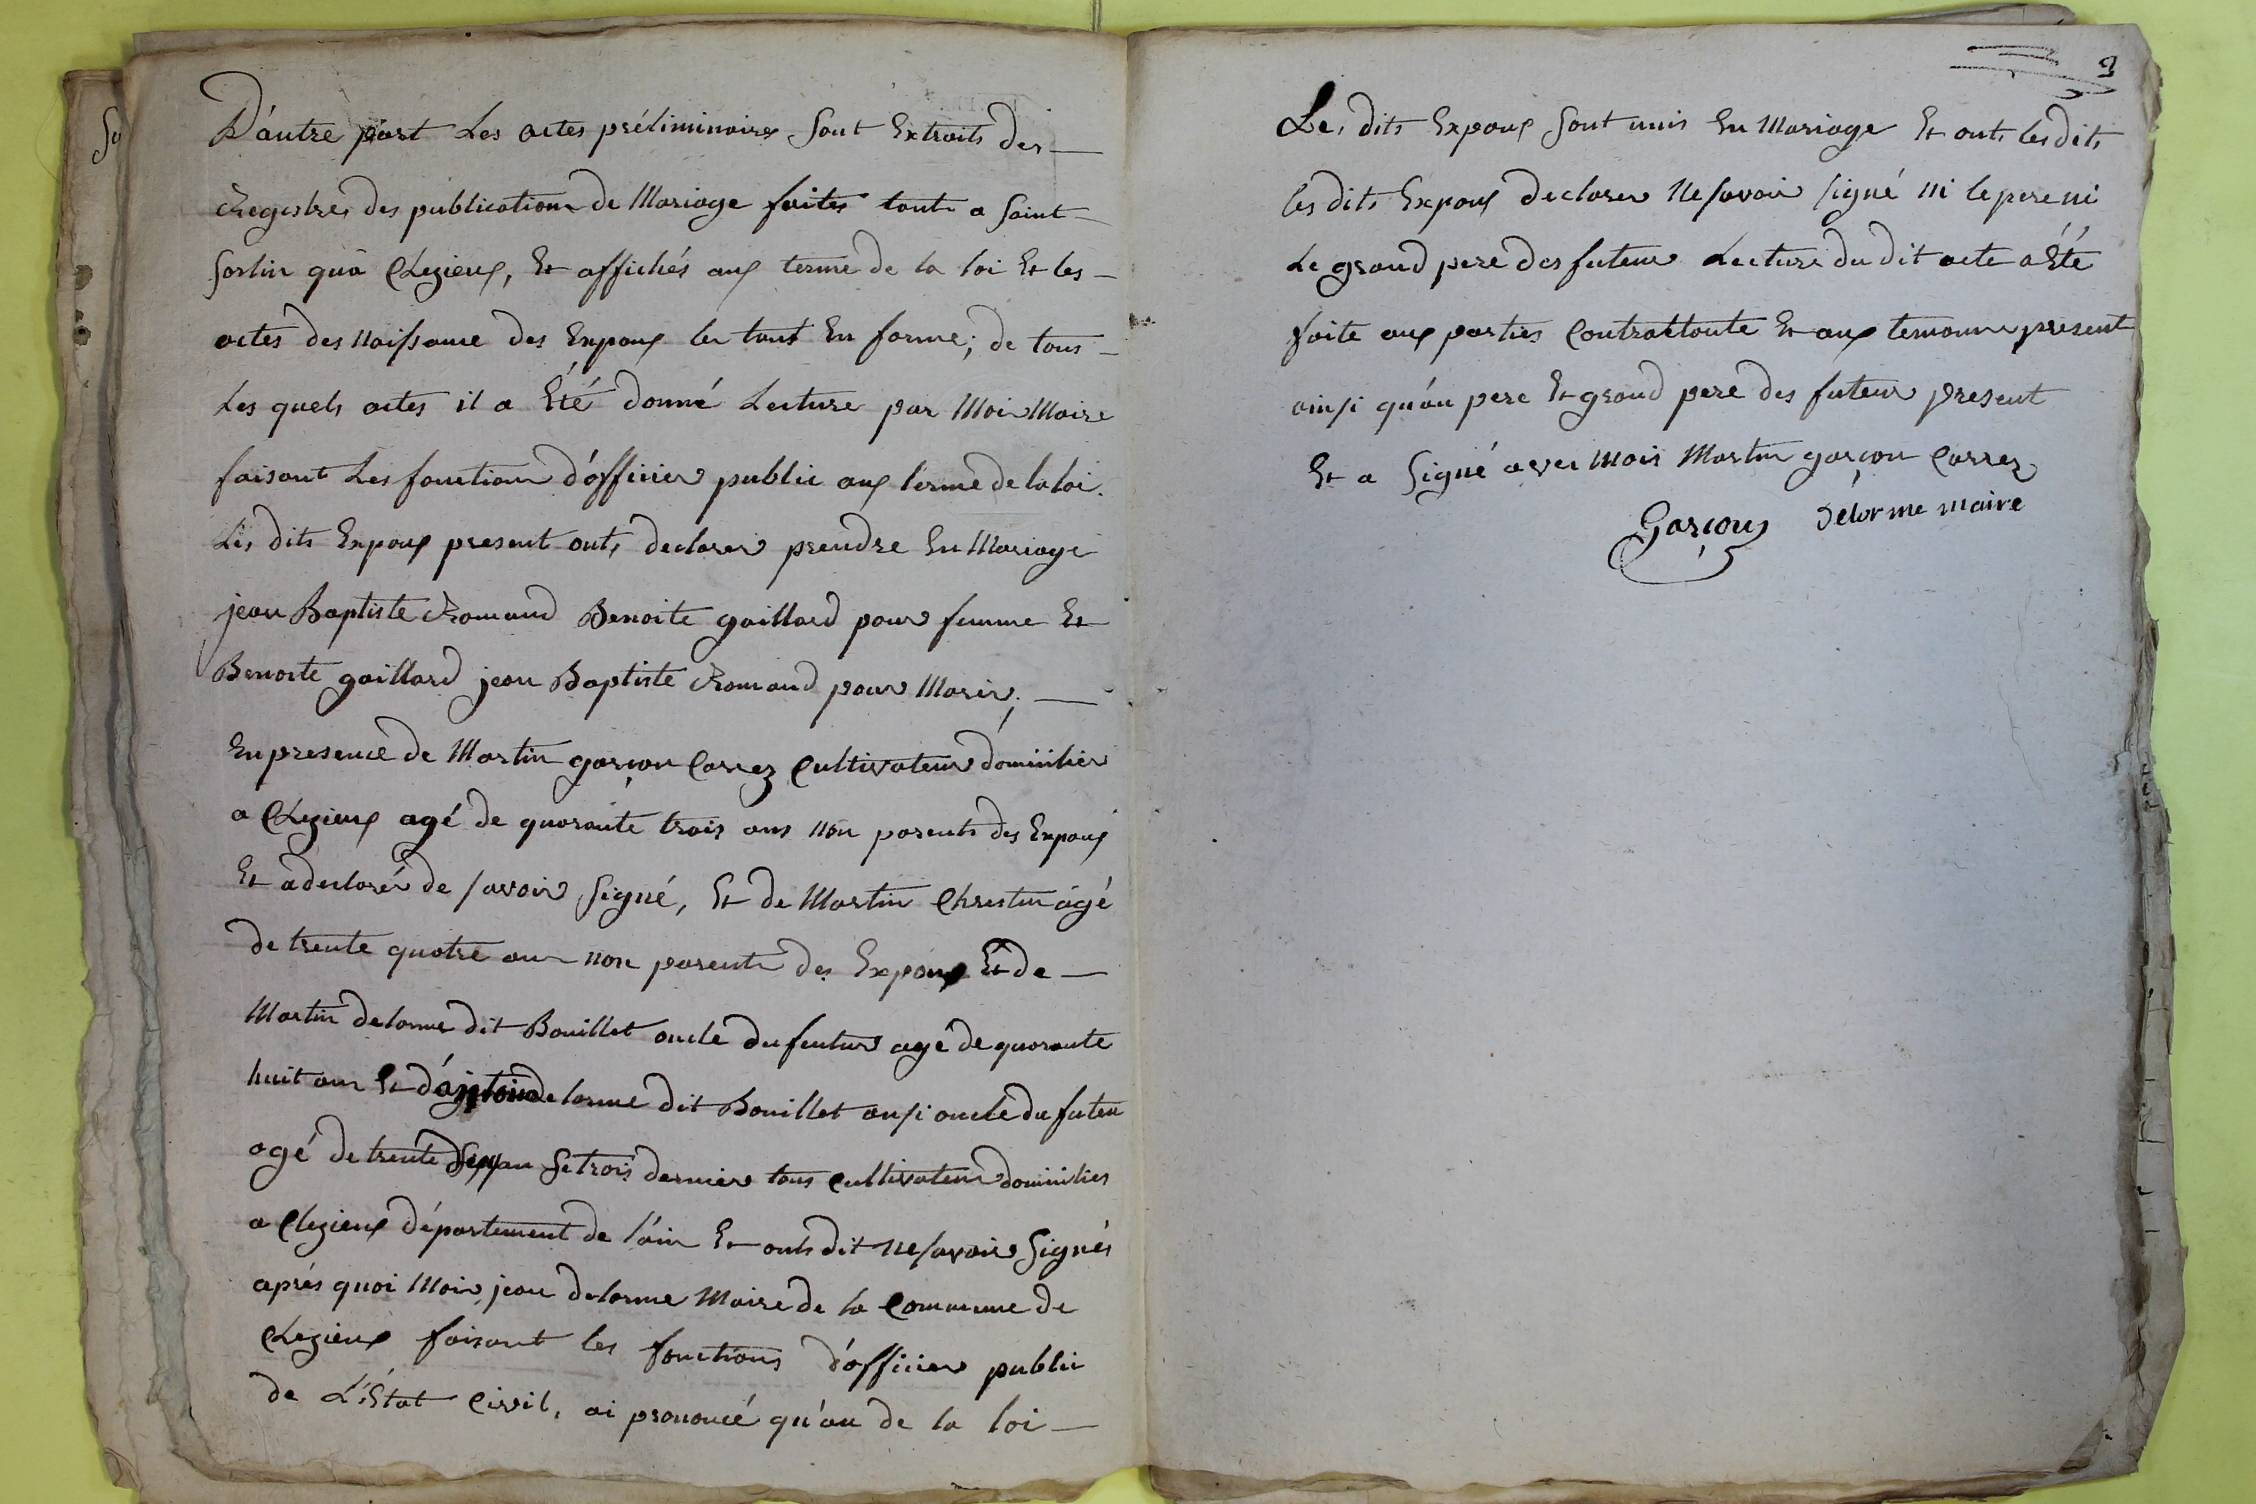 D'autre part Les actes préliminaires Sont Extraits des
Registres des publications de Mariage faites tant a Saint
Sorlin qu'a Clezieux, Et affichés aux terme de la loi Et les
actes des Naissance des Expoux le tout En forme; de tous
Les quels actes il a Été donné Lecture par Moi Maire
faisant Les fonction d'officier public aux terme de la loi.
Les dits Expoux present onts declarer prendre En Mariage
jean Baptiste Romand Benoite gaillard pour femme Et
Benoite gaillard jean Baptiste Romand pour Marir;
En presence de Martin garçon Carrez Cultivateur domicilier
a Clezieux agé de quarante trois ans non parents des Expoux
Et a declarér de savoir Signé, Et de Martin Chrestin agé
de trente quatre ans non parents des Expoux Et de
Martin delorme dit Bouillet oncle du feutur agé de quarante
huit ans Et d' delorme dit Bouillet ausi oncle du futeu
agé de trente Se trois dernier tous Cultivateur domicilies
a Clezieux département de l'ain Et onts dit Ne savoir Signés
aprés quoi Moi jean delorme Maire de la Commune de
Clezieux faisant les fonctions d'officier public
de L'État Civil, ai prononcé qu'au de la loi
3
Les dits Expoux Sont unis En Mariage Et onts les dits
les dits Expoux declarer Ne savoir signé ni le pere ni
Le grand pere des futeur Lecture du dit acte a Été
faite aux parties Contrattante Et aux temoins present
ainsi qu'au pere Et grand pere des futeur present
Et a Signé avec Mois Martin garçon Carrez
Garçon Délorme maire